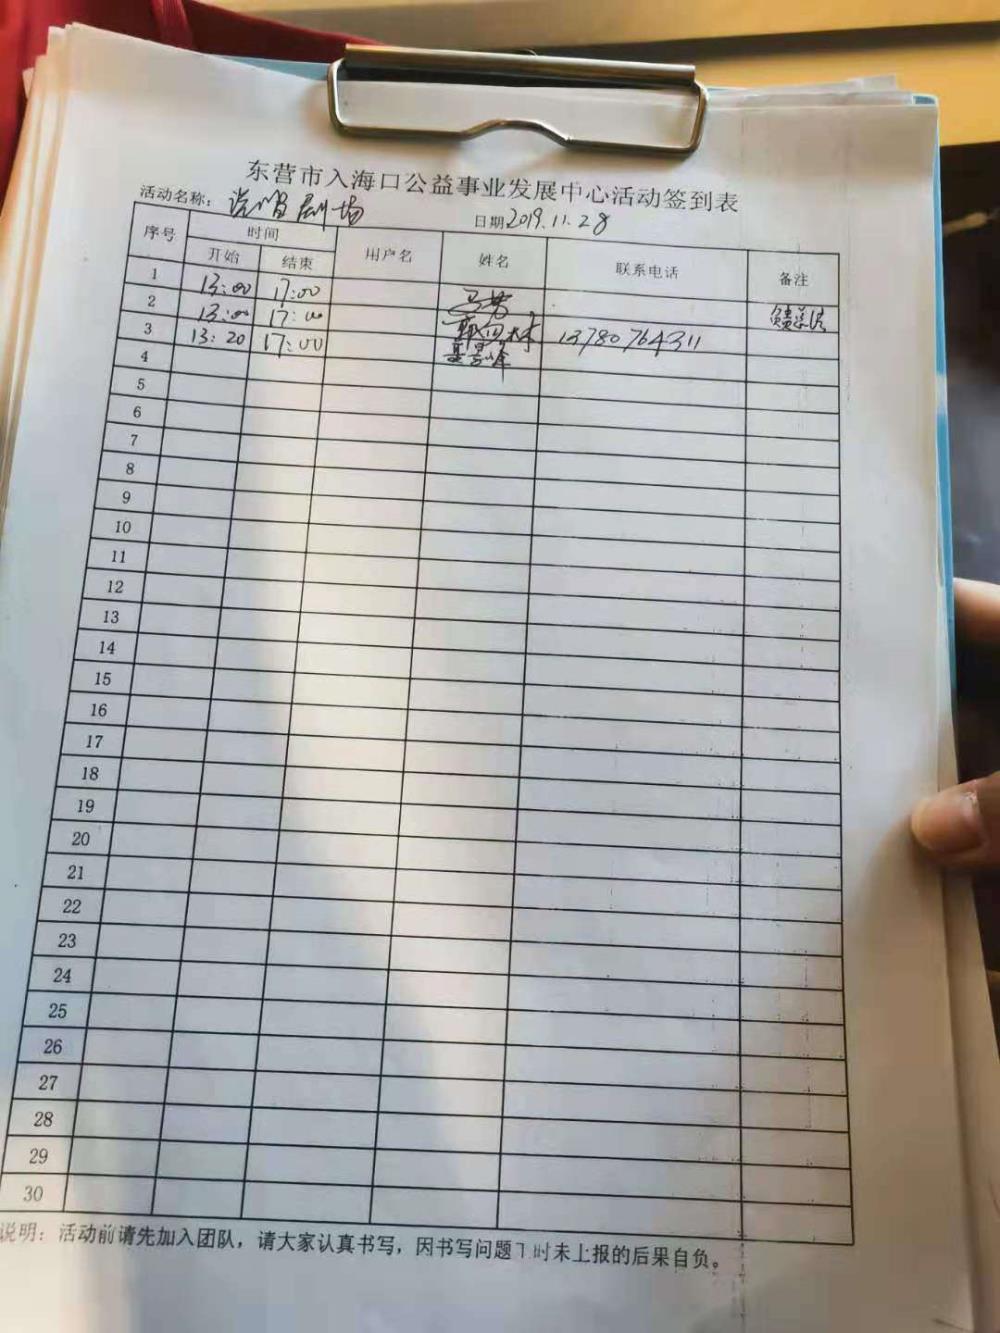 东营市入海口公益事业发展中心活动签到表
活动名称: 说唱剧场 日期2019.11.28
序号 时间 用户名 姓名 联系电话 备注
开始 结束
1 13:00 17:00
2 13:00 17:00
3 13:20 17:00 13780764311
4
5
6
7
8
9
10
11
12
13
14
15
16
17
18
19
20
21
22
23
24
25
26
27
28
29
30
说明: 活动前请先加入团队, 请大家认真书写, 因书写问题 时未上报的后果自负。